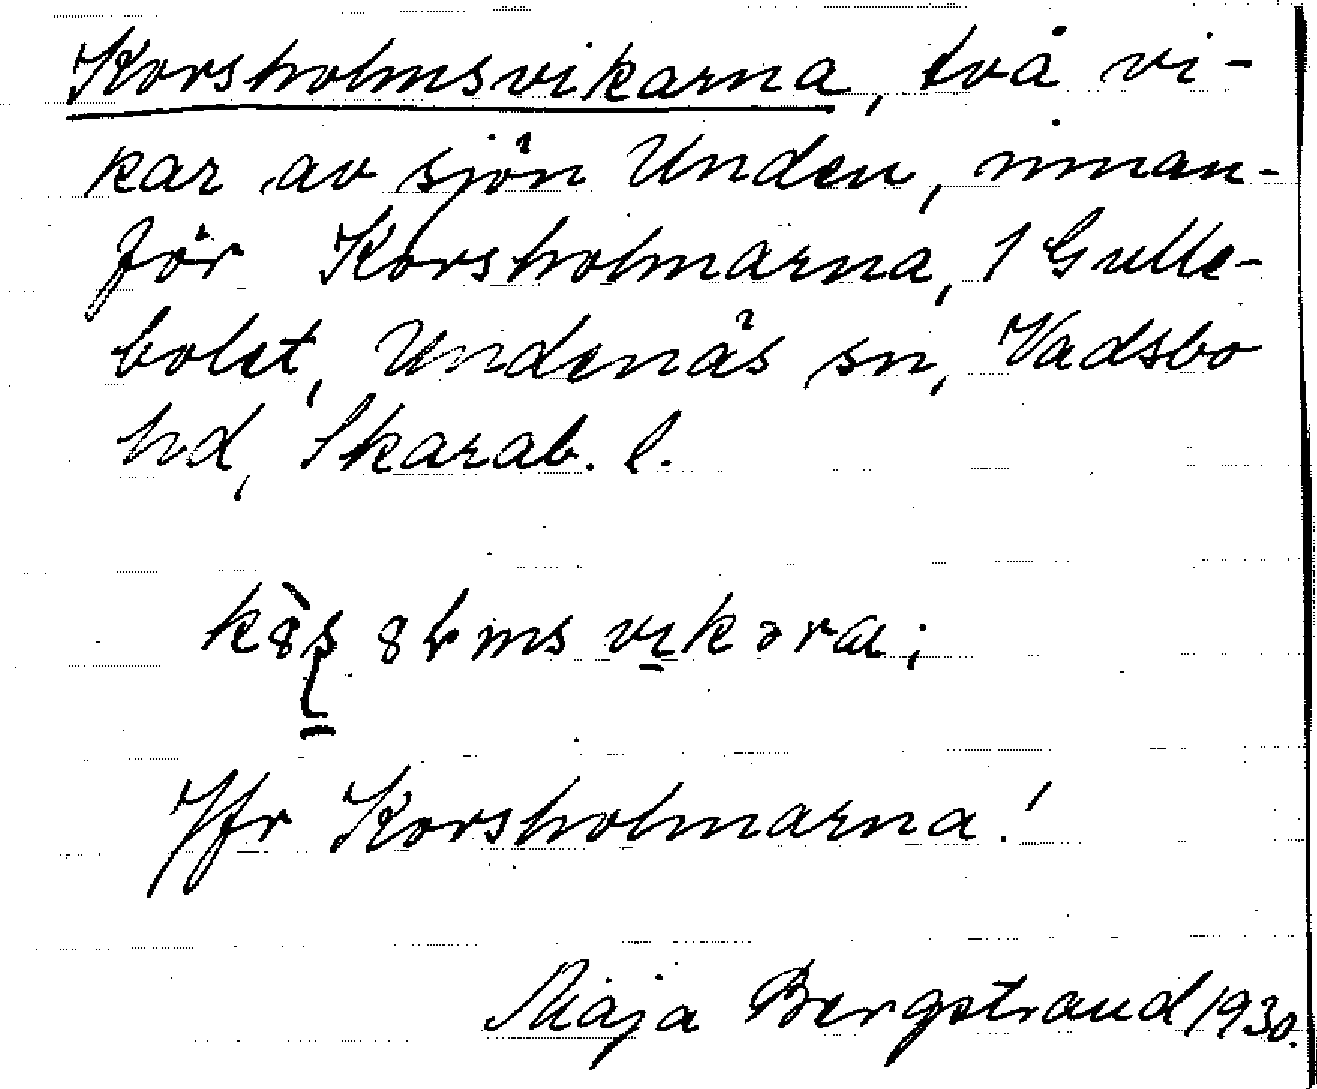 Korsholmsvikarna, två vi-
kar av sjön Unden, innan-
för Korsholmarna, 1 Gulle-
bolet, Undenäs sn, Vadsbo
hd, Skarab. l.
Jfr Korsholmarna!
Maja Bergstrand 1930.